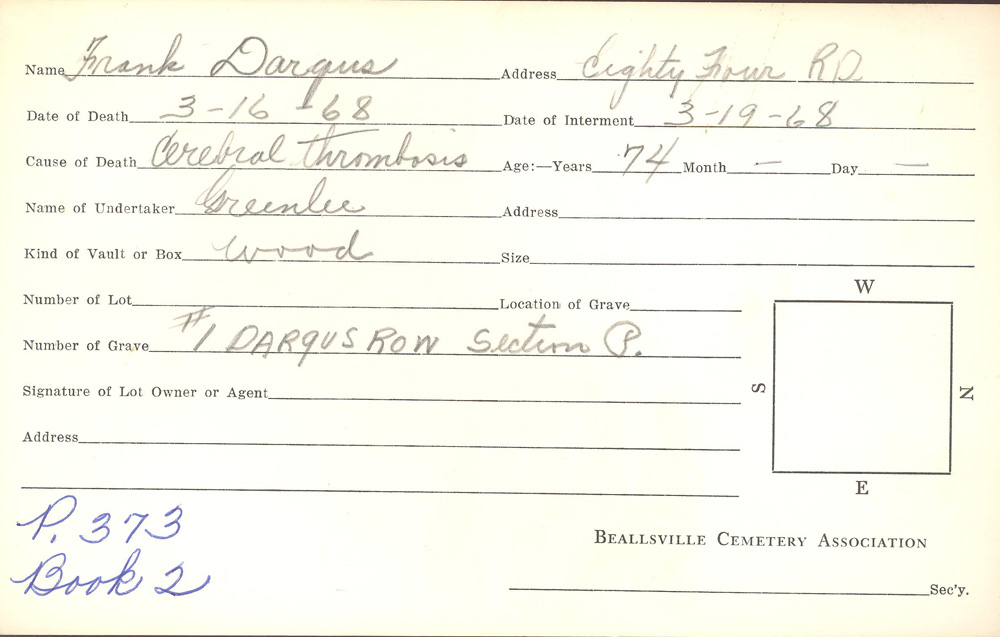 Name Frank Dargus Address Eighty Four RD
Date of Death 3-16-68 Date of Interment 3-19-68
Cause of Death Cerebral thrombosis Age:—Years 74 Month — Day —
Name of Undertaker Greenlee Address
Kind of Vault or Box wood Size
Number of Lot Location of Grave
W
Number of Grave #1 DARGUS ROW Section P.
S N
Signature of Lot Owner or Agent
Address
E
P. 373
Book 2
BEALLSVILLE CEMETERY ASSOCIATION
Sec'y.